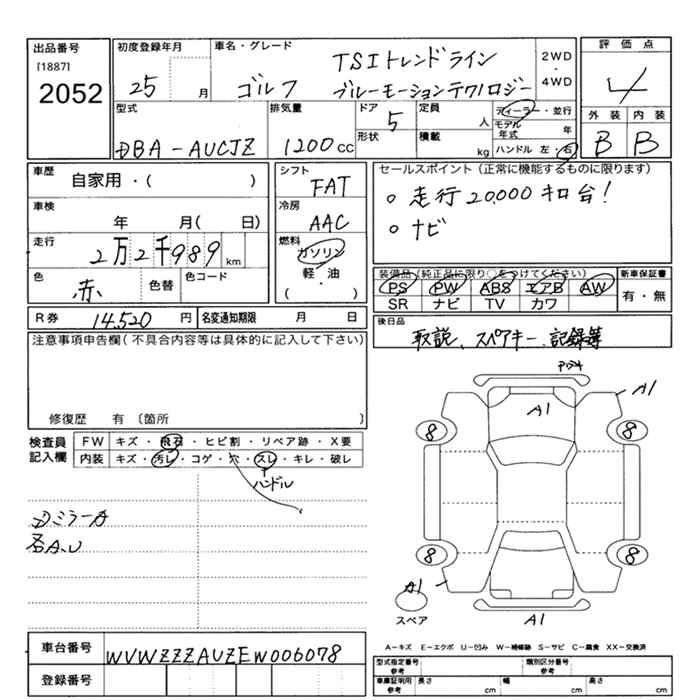 出品番号
[1887]
2052
初度登録年月
25 月
車名・グレード
TSIトレンドライン
ゴルフ ブルーモーションテクノロジー
2WD
・
4WD
評価点
4
外装 内装
B B
型式
DBA-AUCJZ
排気量
1200cc
ドア
5
形状
定員
人
積載
kg
ディーラー・並行
モデル
年式 年
ハンドル 左・右
車歴
自家用・( )
車検
年 月( 日)
走行
2万2千989km
色
赤
色替
色コード
シフト
FAT
冷房
AAC
燃料
ガソリン
・
軽・油
( )
セールスポイント(正常に機能するものに限ります)
○走行20,000キロ台!
○ナビ
装備品(純正品に限り○をつけてください)
PS PW ABS エアB AW
SR ナビ TV カワ
新車保証書
有・無
R券 14,520円
名変通知期限 月 日
後日品
取説、スペアキー、記録簿
注意事項申告欄(不具合内容等は具体的に記入して下さい)
修復歴 有〔箇所 〕
検査員
記入欄
FW キズ・飛石・ヒビ割・リペア跡・X要
内装 キズ・汚レ・コゲ・穴・スレ・キレ・破レ
ハンドル
DミラーA
A1
A1
8
8
8
8
A1
A1
スペア
A-キズ E-エクボ U-凹み W-補修跡 S-サビ C-腐食 XX-交換済
車台番号
WVWZZZAUZEW006078
登録番号
型式指定番号
参考
類別区分番号
参考
車庫証明用
参考
長さ cm
幅 cm
高さ cm